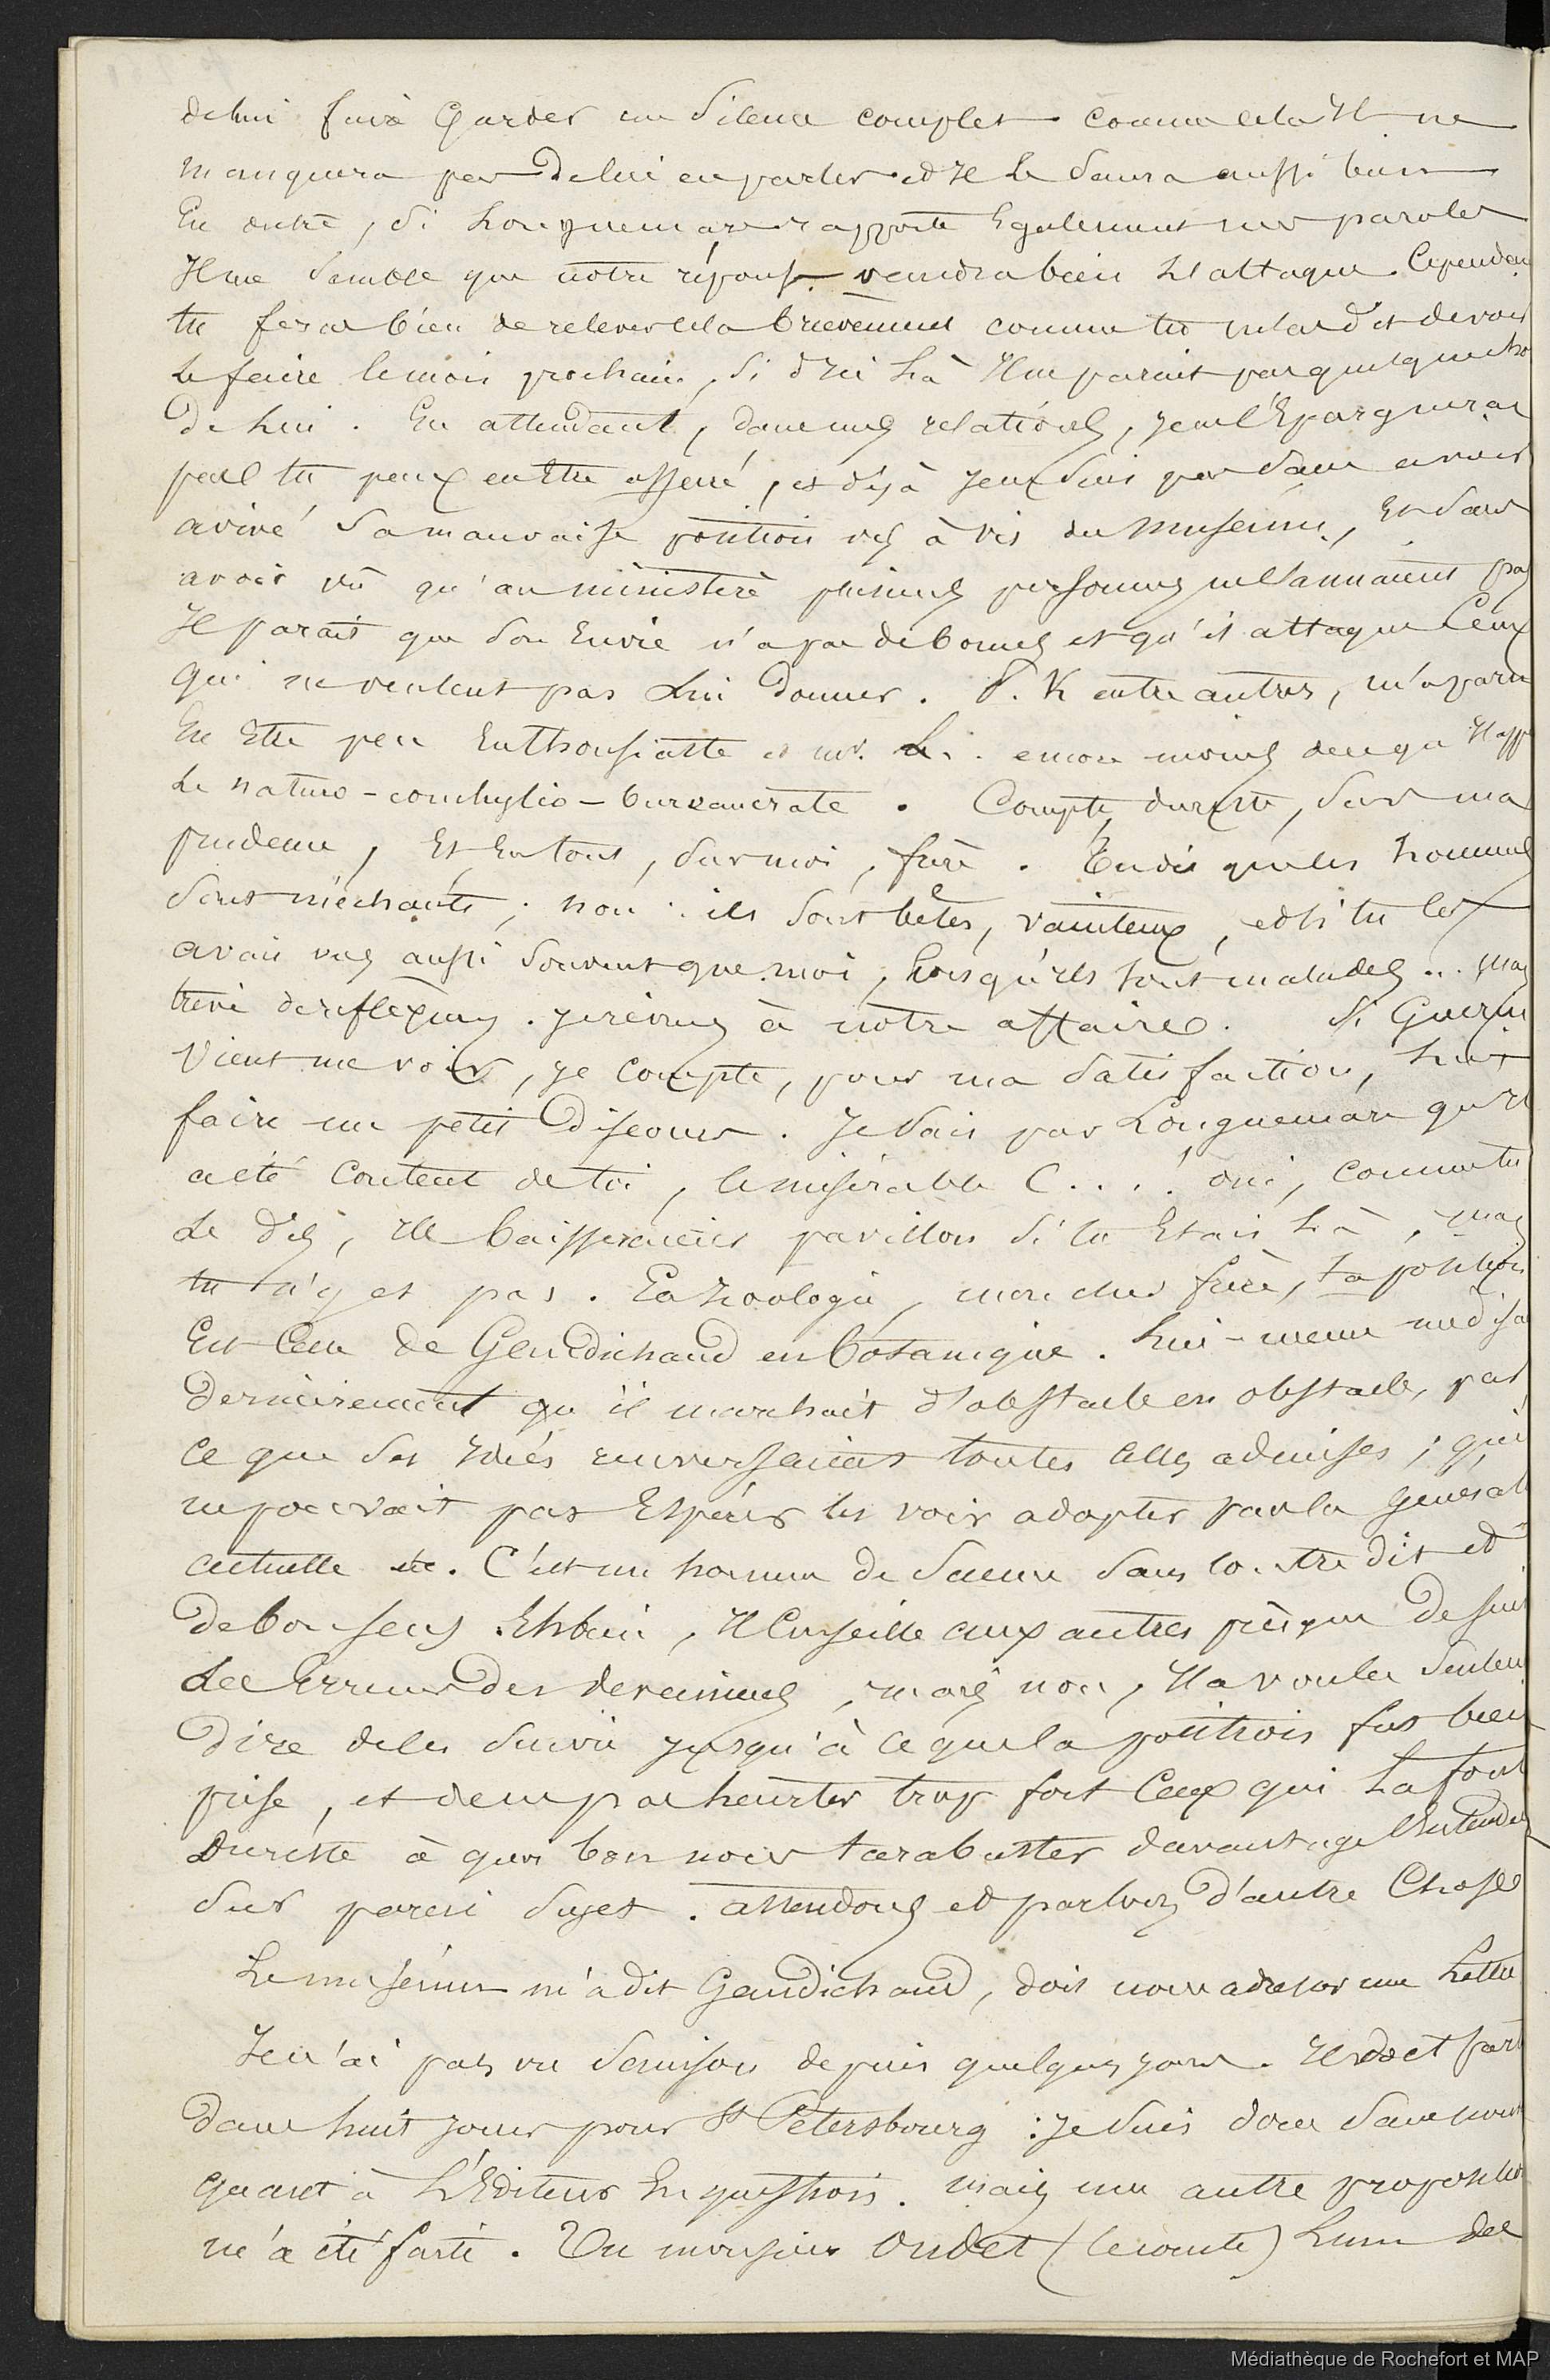 de lui faire Garder un Silence complet comme cela Il ne
manquera pas De lui en parler et Il le Saura aussi bien
En outre, Si Longuemare rapporte Egalement mes paroles
Il me Semble que notre réponse vaudra bien L'attaque. Cependan
tu feras bien de relever cela brievement comme tu me l'as dit devoir
le faire le mois prochain, Si d'Ici Là Il ne parait pas quelque cho
De Lui. En attendant, dans mes relations, je ne l'Epargnerai
pas tu peux en Etre assuré, et déjà je ne suis pas Sans avoir
avivé Sa mauvaise position vis à vis du Museum, Et Sans
avoir vu qu'au ministère plusieurs personnes ne l'aimaient pas
Il parait que Son Envie n'a pas de bornes et qu'il attaque Ceux
Qui ne veulent pas Lui Donner. P. K entre autres, m'a paru
En Etre peu Enthousiaste et mr. Li. encore moins
Le naturo-conchylio-bureaucrate. Compte, du reste, Sur ma
prudence, Et En tout, Sur moi, frère. Tu dis que les hommes
Sont méchants; non: ils Sont bêtes, vaniteux, et Si tu les
avais vus aussi Souvent que moi, Lorsqu'ils Sont malades... mais
trève de réflexions. je reviens à notre affaire. Si Guerin
Vient me voir, je compte, pour ma Satisfaction, Lui
faire un petit Discours. Je Sais par Longuemare qu'il
a été Content de toi, le misérable C....! oui, comme tu
Le dis, Ils baisseraient pavillon Si tu Etais Là, mais
tu n'y es pas. En Zoologie, mon cher frère, ta position
Est Celle de Gaudichaud en botanique. Lui-meme me disa
Dernièrement qu'il marchait d'obstacle en obstacle, par
Ce que Ses Idées renversaient toutes celles admises; qu'il
ne pouvait pas Espérer les voir adopter par la Générat
actuelle etc. C'est un homme de Science Sans contre dit et
De bon sens. Eh bien, Il Conseille aux autres presque De suiv
Les Erreurs Des devanciers, mais non, Il a voulu Seulem
Dire de les Suivre jusqu'à ce que la position fut bien
prise, et de ne pas heurter trop fort Ceux qui La font
Du reste à quoi bon nous tarabuster davantage l'Entendem
Sur pareil Sujet. attendons et parlons D'autre Chose
Le museum m'a dit Gaudichaud, doit nous adresser une Lettre
Je n'ai pas vu depuis quelques jours. Il doit part
Dans huit jours pour St Petersbourg: je Suis donc Sans
quant à L'Editeur En question. mais une autre proposition
m'a été faite. Un monsieur Oudet (le comte) L'un des